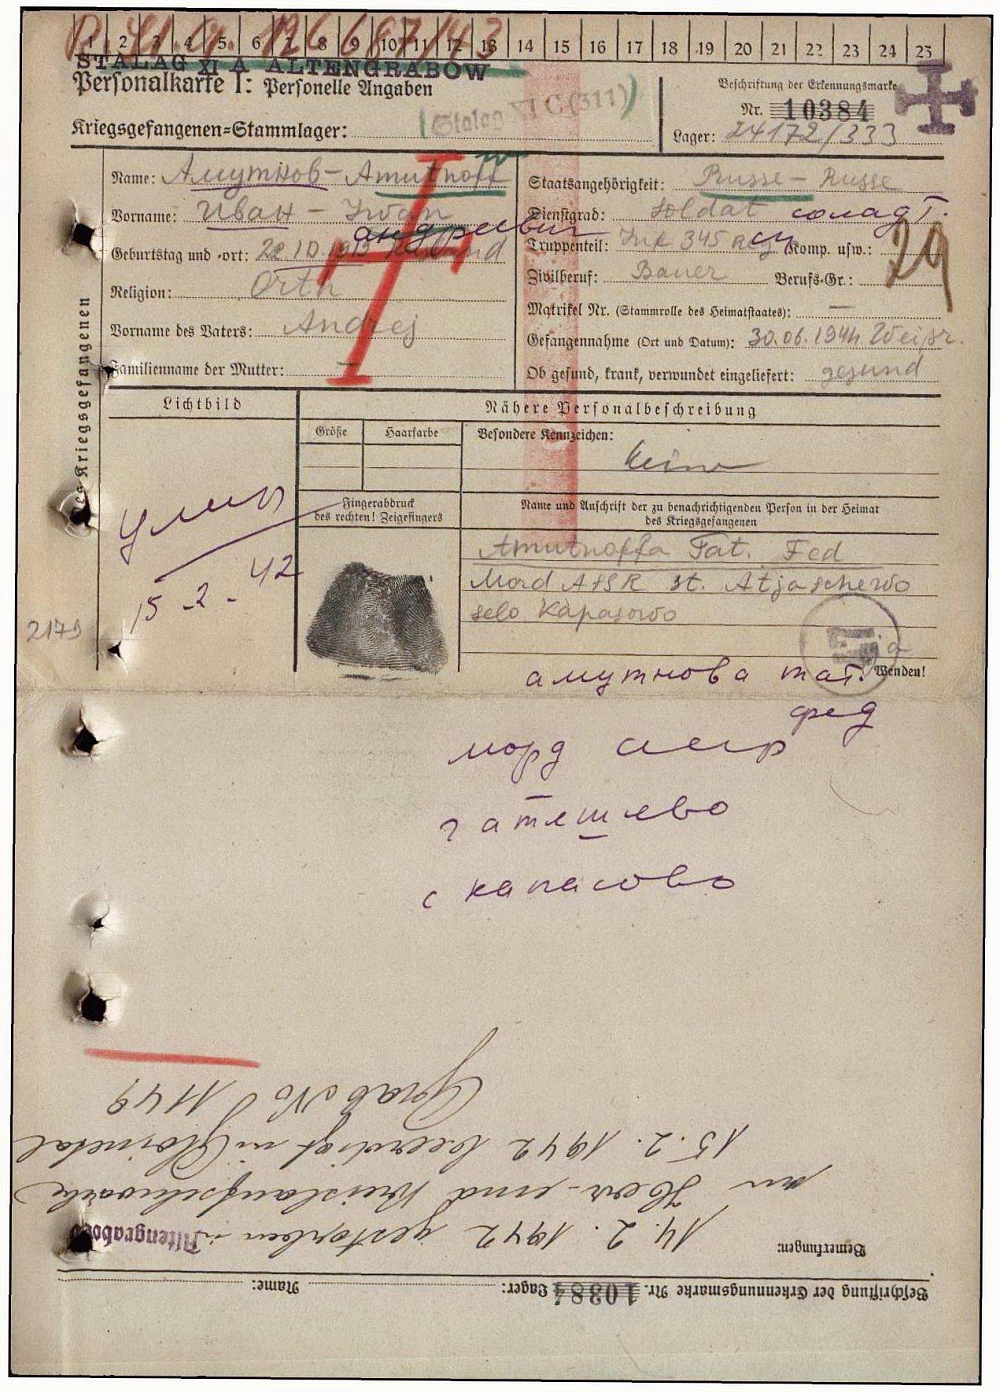 P. Kl. A. 126 687/43
1 2 3 4 5 6 7 8 9 10 11 12 13 14 15 16 17 18 19 20 21 22 23 24 25
STALAG XI A ALTENGRABOW
Personalkarte I: Personelle Angaben
Kriegsgefangenen-Stammlager: Stalag XI C (311)
Beschriftung der Erkennungsmarke
Nr. 10384
Lager: 24172/333
Des Kriegsgefangenen
Name: Амутнов - Amutnoff
Vorname: Иван - Iwan
андреевич
Geburtstag und -ort: 22.10.
Religion: Orth
Vorname des Vaters: Andrej
Familienname der Mutter: —
Staatsangehörigkeit: Russe - Russe
Dienstgrad: Soldat солдат.
Truppenteil: Inf 345 Reg Komp. usw.:
Zivilberuf: Bauer Berufs-Gr.: 29
Matrikel Nr. (Stammrolle des Heimatstaates): —
Gefangennahme (Ort und Datum): 30.06.1941 Weißr.
Ob gesund, krank, verwundet eingeliefert: gesund
Lichtbild
Nähere Personalbeschreibung
Größe Haarfarbe
Besondere Kennzeichen:
keine
Fingerabdruck
des rechten! Zeigefingers
Name und Anschrift der zu benachrichtigenden Person in der Heimat
des Kriegsgefangenen
Amutnoffa Tat. Fed
Mord ASSR st. Atjaschewo
selo Kapasowo
умер
15-2-42
2179
Wenden!
амутнова тат.
фед
морд асср
атяшево
с капасово
Grab No 1149
15.2.1942 beerdigt in
an Herz- und Kreislaufschwäche
14.2.1942 gestorben in Altengrabow
Bemerkungen:
Beschriftung der Erkennungsmarke Nr. 10384 Lager: Name: